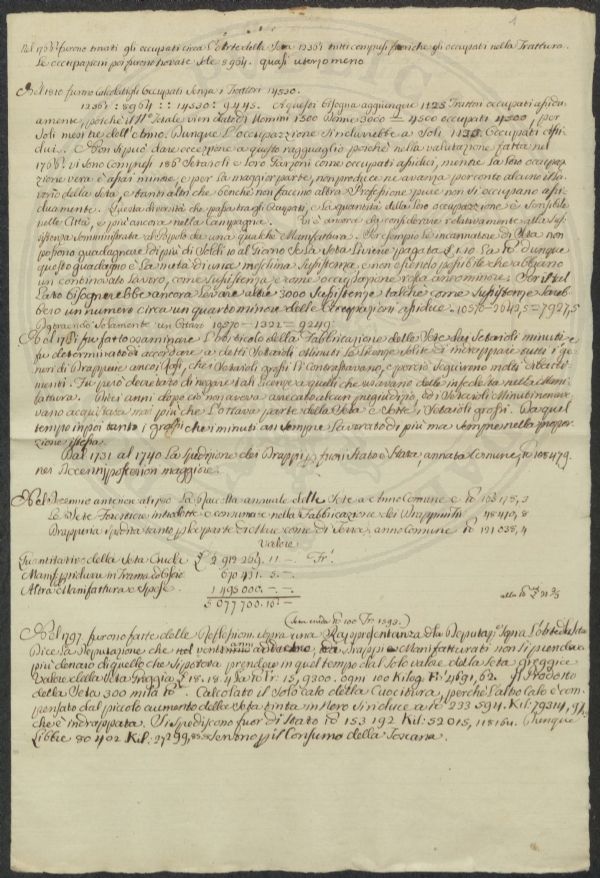 1
Nel 1765 furono trovati gli occupati circa l'Arte della Seta 12365 tutti compresi fuori che gli occupati nella Trattura.
Le occupazioni poi furono trovate Sole 8964. quasi ⅓ meno
Nel 1810 furono calcolati gli Occupati Senza i Trattori 14530.
12365 : 8964 :: 14530 : 9445. A questi bisogna aggiungere 1125 Trattori occupati assidu-
amente, perchè il N.º totale vien dato di Uomini 1500 Donne 3000 = 4500 occupati 4500, per
Soli mesi tre dell'Anno. Dunque l'occupazione si ridurrebbe a Soli 1125. Occupati assi-
dui. E non si può dare eccezione a questo ragguaglio perchè nella valutazione fatta nel
1765. vi sono Compresi 186 Setaioli e Loro Garzoni come occupati assidui, mentre la Loro occupa-
zione vera è assai minore, e per la maggior parte, non produce ne avanza per conto alcuno il la-
vorio della Seta, e tanti altri che benchè non faccino altra Professione pure non si occupano assi-
duamente. Questa diversità che passa tra gli Occupati, e la quantità della loro occupazione è Sensibile
nelle Città, e più ancora nella Campagna. Vi è ancora da considerare relativamente alla Sus-
sistenza Somministrata al Popolo da una qualche Manifattura. Per esempio le incannatore di Seta non
possono guadagnare di più di Soldi 10 al Giorno Se la Seta Viene pagata £ 1.10 la lb dunque
questo guadagno è la metà di una meschina Sussistenza, e non essendo possibile che abbiano
un continovato lavoro, come Sussistenza e come occupazione resta ancor minore. Per il tal
Lato bisognerebbe ancora levare altre 3000 Sussistenze talchè come Sussistenze Sareb-
bero un numero circa un quarto minore delle Occupazioni assidue. 10570 - 2642,5 = 7927,5
Detraendo solamente un Ottavo 10570 - 1321 = 9249
Nel 1781 fu fatto esaminare l'articolo della Fabbricazione delle Sete dai Setaioli minuti e
fu determinato di accordare a detti Setaioli Minuti le Licenze Solite di indrappare tutti i ge-
neri di Drapperie ancor lisci, che i Setaioli grossi li Contrastavano, e perciò Seguirono molti
menti. Fu però decretato di negare tali licenze a quelli che usavano delle infedeltà nella Mani-
fattura. Dieci anni dopo ciò non aveva arrecato alcun pregiudizio, ed i Setaioli Minuti non ave-
vano acquistata mai più che l'ottava parte della Seta e Sotto i Setaioli grossi. Da quel
tempo in poi tanto i grossi che i minuti an sempre lavorato di più ma sempre nella propor-
zione istessa.
Dal 1731 al 1740 La Spedizione dei Drappi p fuori Stato è Stata, annata Comune, lb 108479.
nei Decenni posteriori maggiore.
Nel Decennio antecedente la raccolta annuale delle Sete a Anno Comune è lb 163 178,3
Le Sete Forestiere introdotte e consumate nella Fabbricazione dei Drappi 48410,8
Drapperia spedita tanto p la parte di Mare come di Terra, anno Comune lb 121 038,4
Valore
Quantitativo della Seta Cruda £ 2 912 269. 11. — Fr.
Manifattura in Trama ed Orsoio 670 431. 5. —
Altra Manifattura e Spese 1 495 000. — . —
5 077 700. 16. —
Nel 1797. furono fatte delle Riflessioni sopra una Rappresentanza della Deputaz.e Sopra l'Arte della Seta
Dice la Deputazione che dai Drappi e Manifatturati non Si prendeva
più denaro di quello che Si poteva prendere in quel tempo dal Solo valore della Seta greggia
Valore della Seta Greggia £ 18. 18. 4 la lb Fr. 15, 9300. ogni 100 Kilog. Fr. 4691, 62. Il Prodotto
della Seta 300 mila lb. Calcolato il Solo calo della Cuocitura, perchè l'altro Calo è com-
pensato dal piccolo aumento della Seta tinta in Nero Si riduce a lb 233 594. Kil: 79314,
che è indrappata. Si Spediscono fuor di Stato lb 153 192 Kil: 52015, 118164. Dunque
Libbre 80 402 Kil: 27299, restano p il Consumo della Toscana.